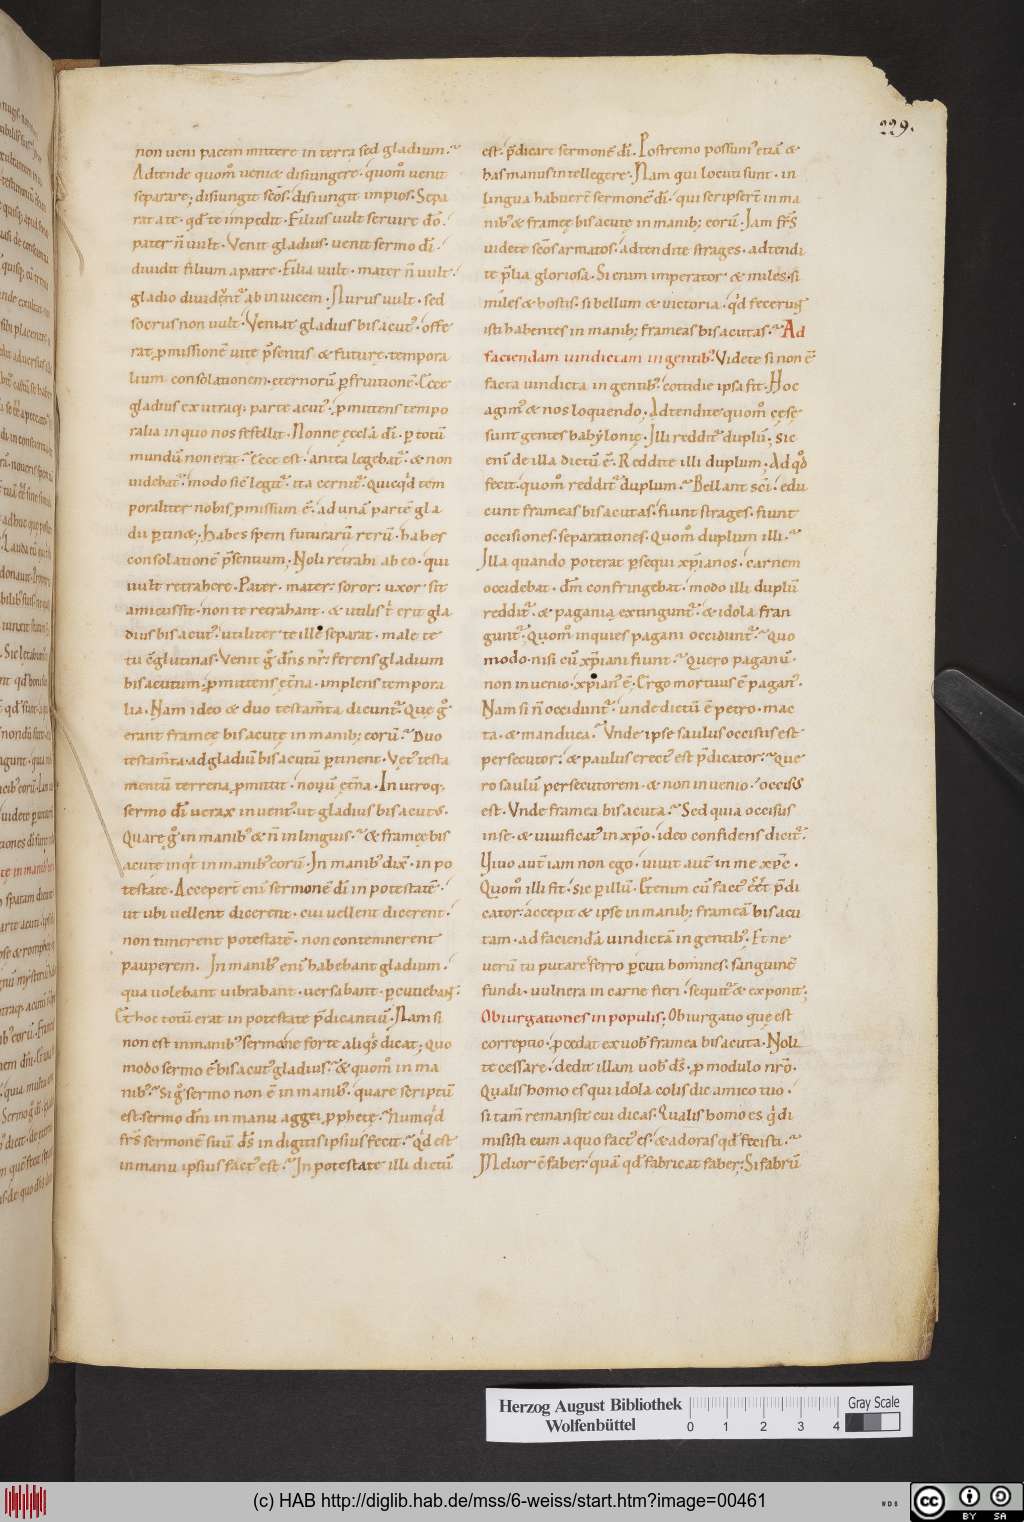 229.
non ueni pacem mittere in terra sed gladium.
Adtende quom̊ uenit disiungere · quom̊ uenit
separare; disiungit sc̄os · disiungit impios · Sepa
rat a te · qđ te impedit · Filius uult seruire dō ·
pater n̄ uult · Venit gladius · uenit sermo dī ·
diuidit filium a patre · Filia uult · mater n̄ uult ·
gladio diuident᷑ ab inuicem · Nurus uult · sed
socrus non uult · Veniat gladius bis acut᷒ · offe
rat ꝓmissionē uitę p̄sentis & futurę · tempora
lium consolationem · eternorū ꝑfruitionē · Ecce
gladius ex utraq; parte acut᷒ · ꝓmittens tempo
ralia in quo nos fefellit · Nonne ęcclā dī · ꝑ totū
mundū non erat · Ecce est · antea legebat᷑ · & non
uidebat᷑ · modo sic legit᷑ · ita cernit᷑ · Quicqd tem
poraliter nobis ꝓmissum ē · ad unā partē gla
dii ꝑtinet; habes spem futurarū rerū · habes
consolationē p̄sentium; Noli retrahi ab eo · qui
uult retrahere · Pater · mater · soror · uxor sit
amicus sit · non te retrahant · & utilis t' erit gla
dius bis acut᷒ · utiliter te ille separat · male te
tu c̄glutinas · Venit g̊ dn̄s nr̄ · ferens gladium
bis acutum · ꝓmittens ęt̄na · implens tempora
lia · Nam ideo & duo testam̄ta dicunt᷑ · Que g̊
erant framęę bis acutę in manib; eorū · Duo
testam̄ta · ad gladiū bis acutū ꝑtinent · Vet᷒ testa
mentū terrena ꝓmittit · nouū ęt̄na · In utroq;
sermo dī uerax inuent᷒ · ut gladius bis acutus ·
Quare g̊ in manib᷒ & n̄ in linguis · & framęę bis
acutę inqt in manib᷒ eorū · In manib᷒ dix̄ · in po
testate · Acceperī enī sermonē dī in potestatē ·
ut ubi uellent dicerent · cui uellent dicerent ·
non timerent potestatē · non contemnerent
pauperem. In manib᷒ enī habebant gladium ·
qua uolebant uibrabant · uersabant · ꝑcutiebant ·
Et hoc totū erat in potestate p̄dicantiū · Nam si
non est in manib᷒ sermo · ne forte aliqs dicat; quo
modo sermo ē bis acut᷒ gladius · & quom̊ in ma
nib᷒ · Si g̊ sermo non ē in manib᷒ · quare scriptū
est · sermo dn̄i in manu aggei ꝓphetę · Numqd
fr̄s sermonē suū ds̄ in digitis ipsius fecit · Qd est
in manu ipsius fact᷒ est · In potestate illi dictū
est · p̄dicare sermonē dī · Postremo possum᷒ etiā &
has manus intellegere · Nam qui locuti sunt · in
lingua habuerē sermonē dī · qui scripserī in ma
nib᷒ & framęę bis acutę in manib; eorū · Iam fr̄s
uidete sc̄os armatos · adtendite strages · adtendi
te p̄lia gloriosa · Si enim imperator & miles · si
miles & hostis · si bellum & uictoria · qd fecerunt
isti habentes in manib; frameas bis acutas · Ad
faciendam uindictam in gentib᷒ · Videte si non ē
facta uindicta in gentib᷒ · cottidie ipsa fit · Hoc
agim᷒ & nos loquendo; Adtendite quom̊ cęsę
sunt gentes babylonię · Illi reddit᷑ duplū; sic
enī de illa dictū ē · Reddite illi duplum; Ad qđ
fecit · quom̊ reddit᷑ duplum · Bellant sc̄i · edu
cunt frameas bis acutas · fiunt strages · fiunt
occisiones · separationes · Quom̊ duplum illi ·
Illa quando poterat ꝑsequi xp̄ianos · carnem
occidebat · dm̄ confringebat · modo illi duplū
reddit᷑ · & pagani extingunt᷑ · & idola fran
gunt᷑; Quom̊ inquies pagani occidunt᷑ · Quo
modo · nisi cū xp̄iani fiunt · Quero paganū ·
non inuenio · xp̄ian᷒ ē; Ergo mortuus ē pagan᷒ ·
Nam si n̄ occidunt᷑ · unde dictū ē petro · mac
ta · & manduca · Vnde ipse saulus occisus est
persecutor · & paulus erect᷒ est p̄dicator · Que
ro saulū persecutorem · & non inuenio · occisus
est · Vnde framea bis acuta · Sed quia occisus
in se · & uiuificat᷒ in xp̄o · ideo confidens dicit᷑ ·
Viuo aut̄ iam non ego · uiuit aut̄ in me xp̄c ·
Quom̊ illi fit · sic ꝑ illū · Etenim cū fact᷒ eēt p̄di
cator · accepit & ipse in manib; frameā bis acu
tam · ad faciendā uindictā in gentib᷒ · Et ne
uerū tu putares ferro ꝑcuti homines · sanguinē
fundi · uulnera in carne fieri · sequit᷑ & exponit;
Obiurgationes in populis; Obiurgatio quę est
correptio · ꝓcedat ex uob᷒ framea bis acuta · Noli
te cessare · dedit illam uob᷒ ds̄ · ꝓ modulo nr̄o ·
Qualis homo es qui idola colis dic amico tuo ·
si tam̄ remansit cui dicas · Qualis homo es q di
misisti eum a quo fact᷒ es · & adoras qđ fecisti ·
Melior ē faber · quā qđ fabricat faber; Si fabrū
Herzog August Bibliothek
Wolfenbüttel
0 1 2 3 4
Gray Scale
(c) HAB http://diglib.hab.de/mss/6-weiss/start.htm?image=00461
WDB
cc BY SA